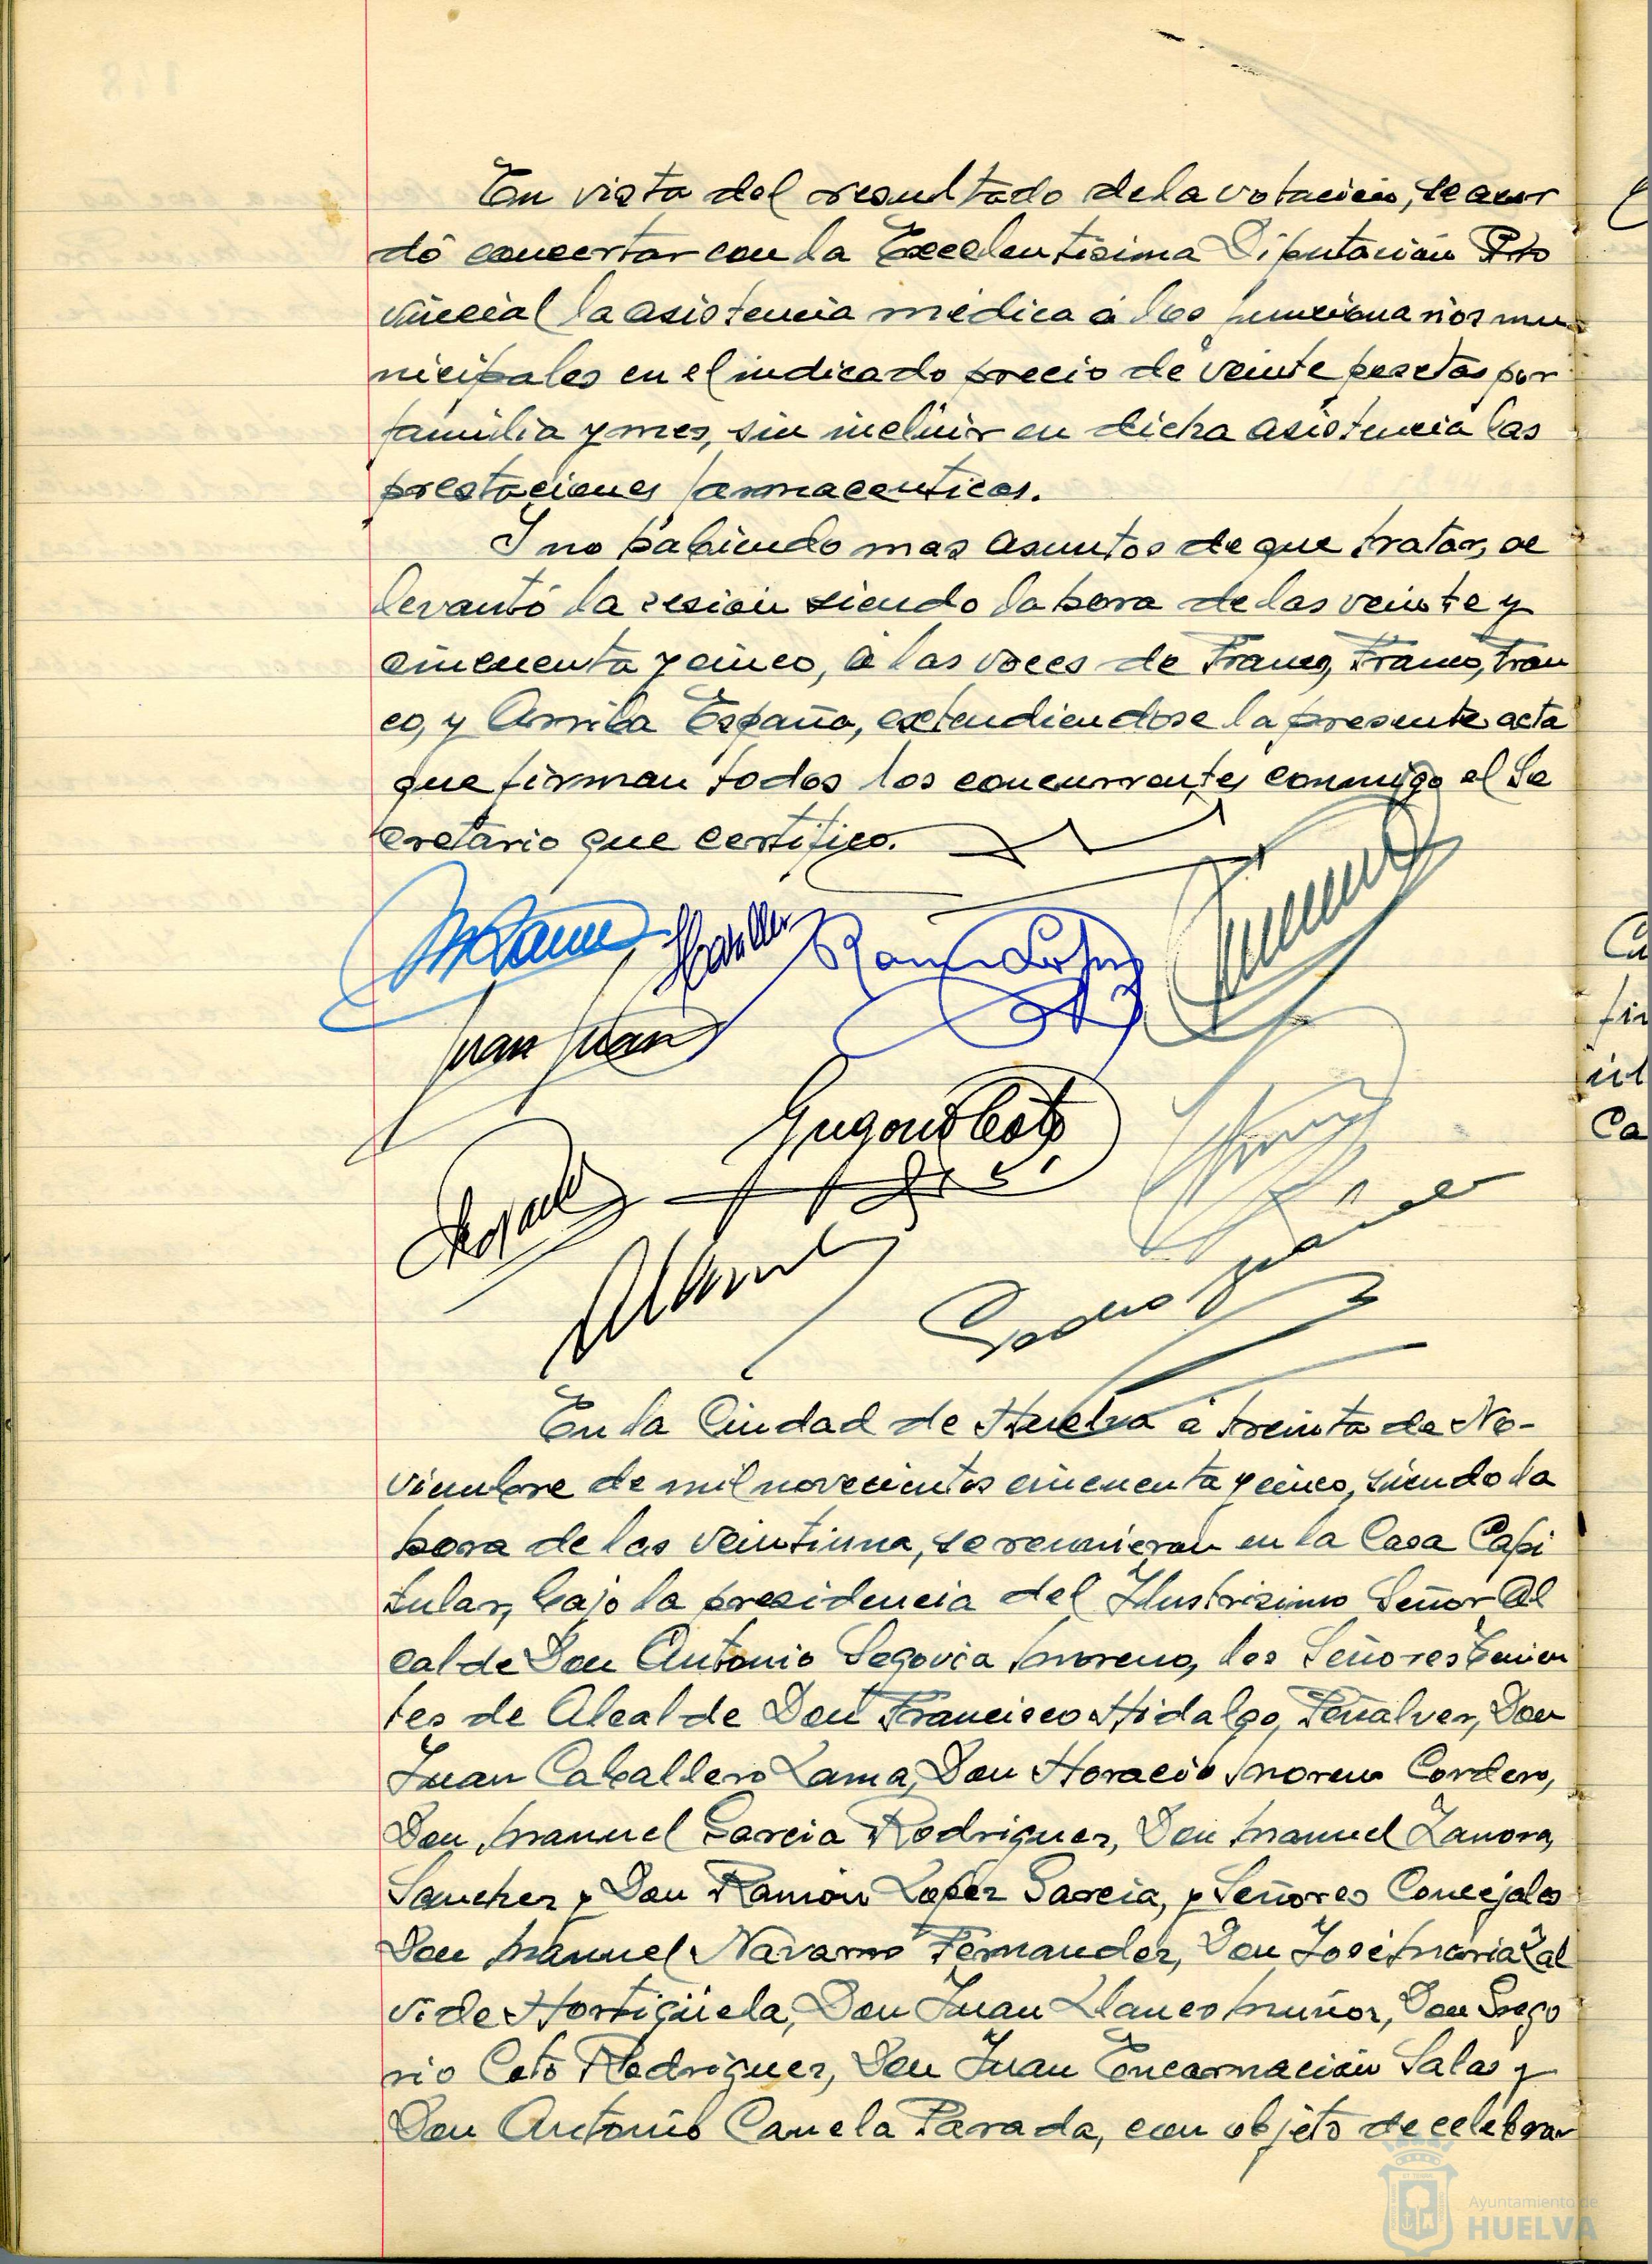 En vista del resultado de la votación, se acor
dó concertar con la Excelentisima Diputación Pro
vincial la asistencia médica á los funcionarios mu
nicipales en el indicado precio de veinte pesetas por
familia y mes, sin incluir en dicha asistencia las
prestaciones farmaceuticas.
Y no habiendo mas asuntos de que tratar, se
levantó la sesión siendo la hora de las veinte y
cincuenta y cinco, á las voces de Franco, Franco, Fran
co, y Arriba España, extendiendose la presente acta
que firman todos los concurrentes conmigo el Se
cretario que certifico.
Ramón López
Juan Juan
Gregorio Coto
En la Ciudad de Huelva á treinta de No-
viembre de mil novecientos cincuenta y cinco, siendo la
hora de las veintiuna, se reunieron en la Casa Capi
tular, bajo la presidencia del Ilustrisimo Señor Al
calde Don Antonio Segovia Moreno, los Señores Tenien
tes de Alcalde Don Francisco Hidalgo Peñalver, Don
Juan Caballero Lama, Don Horacio Moreno Cordero,
Don Manuel Garcia Rodriguez, Don Manuel Zamora
Sanchez y Don Ramón Lopez Garcia, y Señores Concejales
Don Manuel Navarro Fernandez, Don José Maria Zal
vide Hortigüela, Don Juan Llanes Muñoz, Don Grego
rio Coto Rodriguez, Don Juan Encarnación Salas y
Don Antonio Canela Parada, con objeto de celebrar
Ayuntamiento de
HUELVA